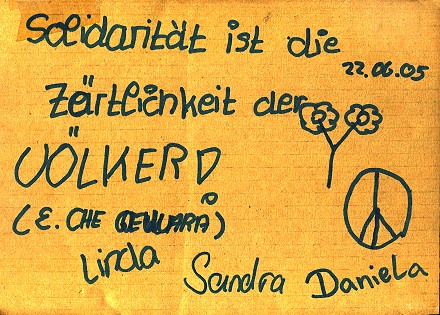 Solidarität ist die
22.06.05
Zärtlichkeit der
VÖLKER
(E. CHE GEUVARA)
Linda Sandra Daniela